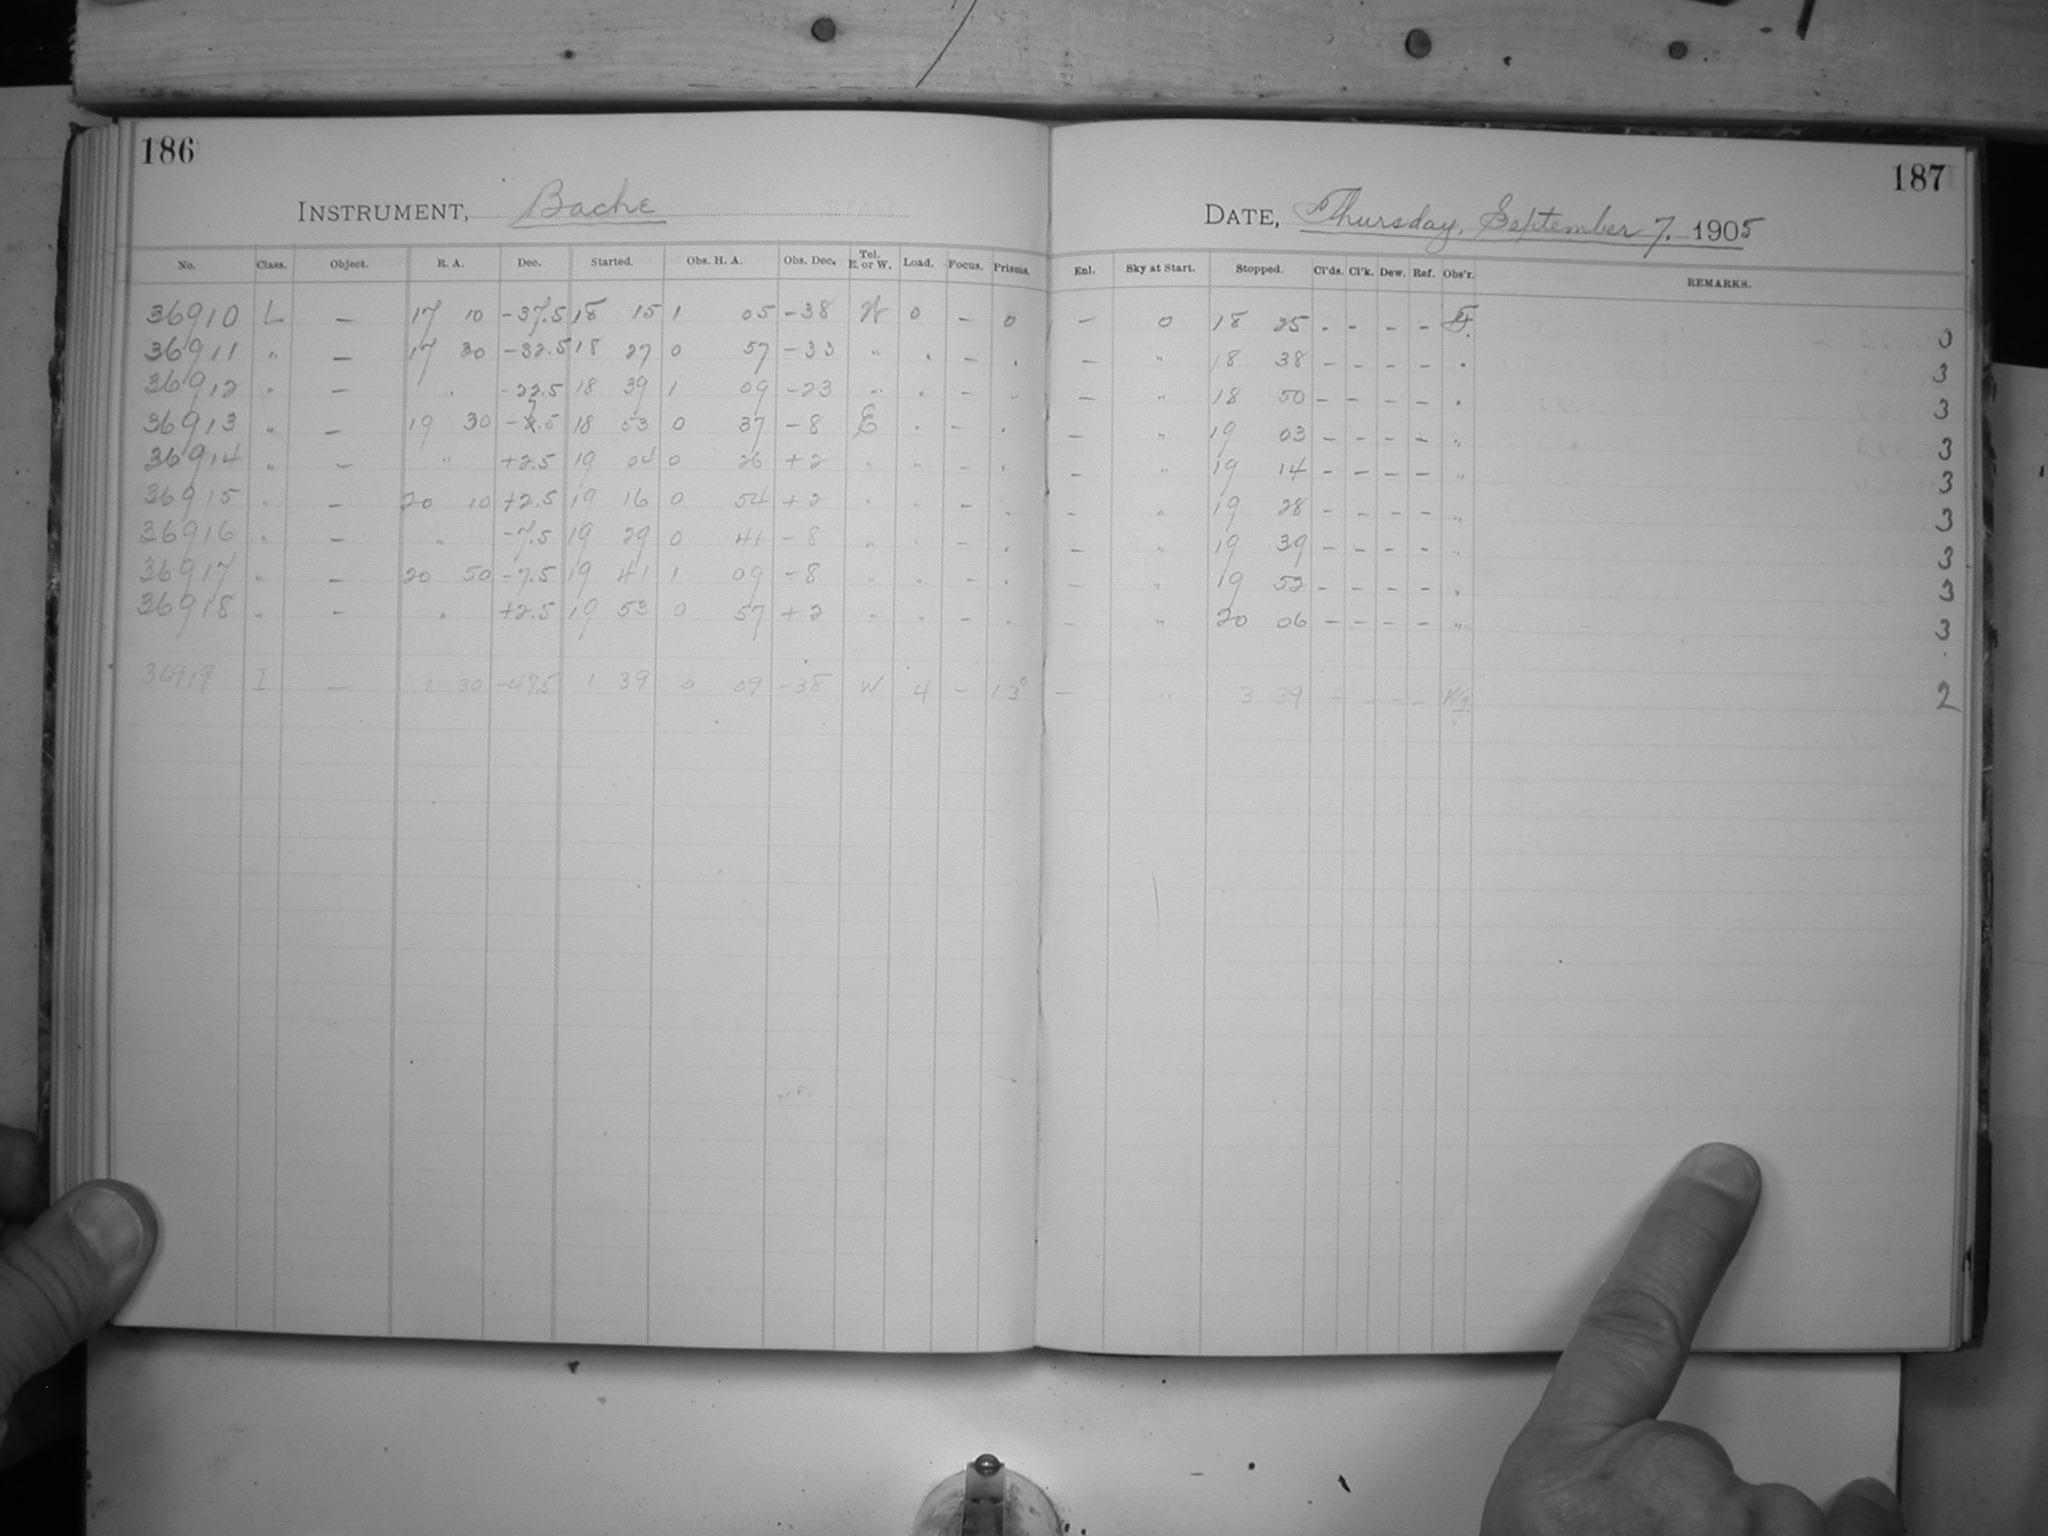 186
INSTRUMENT, Bache
No. Class. Object. R. A. Dec. Started. Obs. H. A. Obs. Dec. Tel. E. or W. Load. Focus. Prisms.
36910 L — 17 10 -37.5 18 15 1 05 -38 W 0 — 0
36911 " — 17 30 -32.5 18 27 0 57 -33 " . — .
36912 " — " -22.5 18 39 1 09 -23 " . — "
36913 " — 19 30 -7.5 18 53 0 37 -8 E . — .
36914 " — " +2.5 19 04 0 26 +2 " " — .
36915 " — 20 10 +2.5 19 16 0 54 +2 " . — .
36916 " — " -7.5 19 29 0 41 -8 " . — .
36917 " — 20 50 -7.5 19 41 1 09 -8 " . — .
36918 " — " +2.5 19 53 0 57 +2 " . — .
36919 I — 1 30 -47.5 1 39 0 09 -38 W 4 — 13°
187
DATE, Thursday, September 7, 1905
Enl. Sky at Start. Stopped. Cl'ds. Cl'k. Dew. Ref. Obs'r. REMARKS.
— 0 18 25 - - - - 3
— " 18 38 - - - - . 3
— " 18 50 - - - - . 3
— " 19 03 - - - - " 3
— " 19 14 - - - - " 3
— " 19 28 - - - - " 3
— " 19 39 - - - - " 3
— " 19 52 - - - - " 3
— " 20 06 - - - - " 3
— " 3 39 - - - - 2